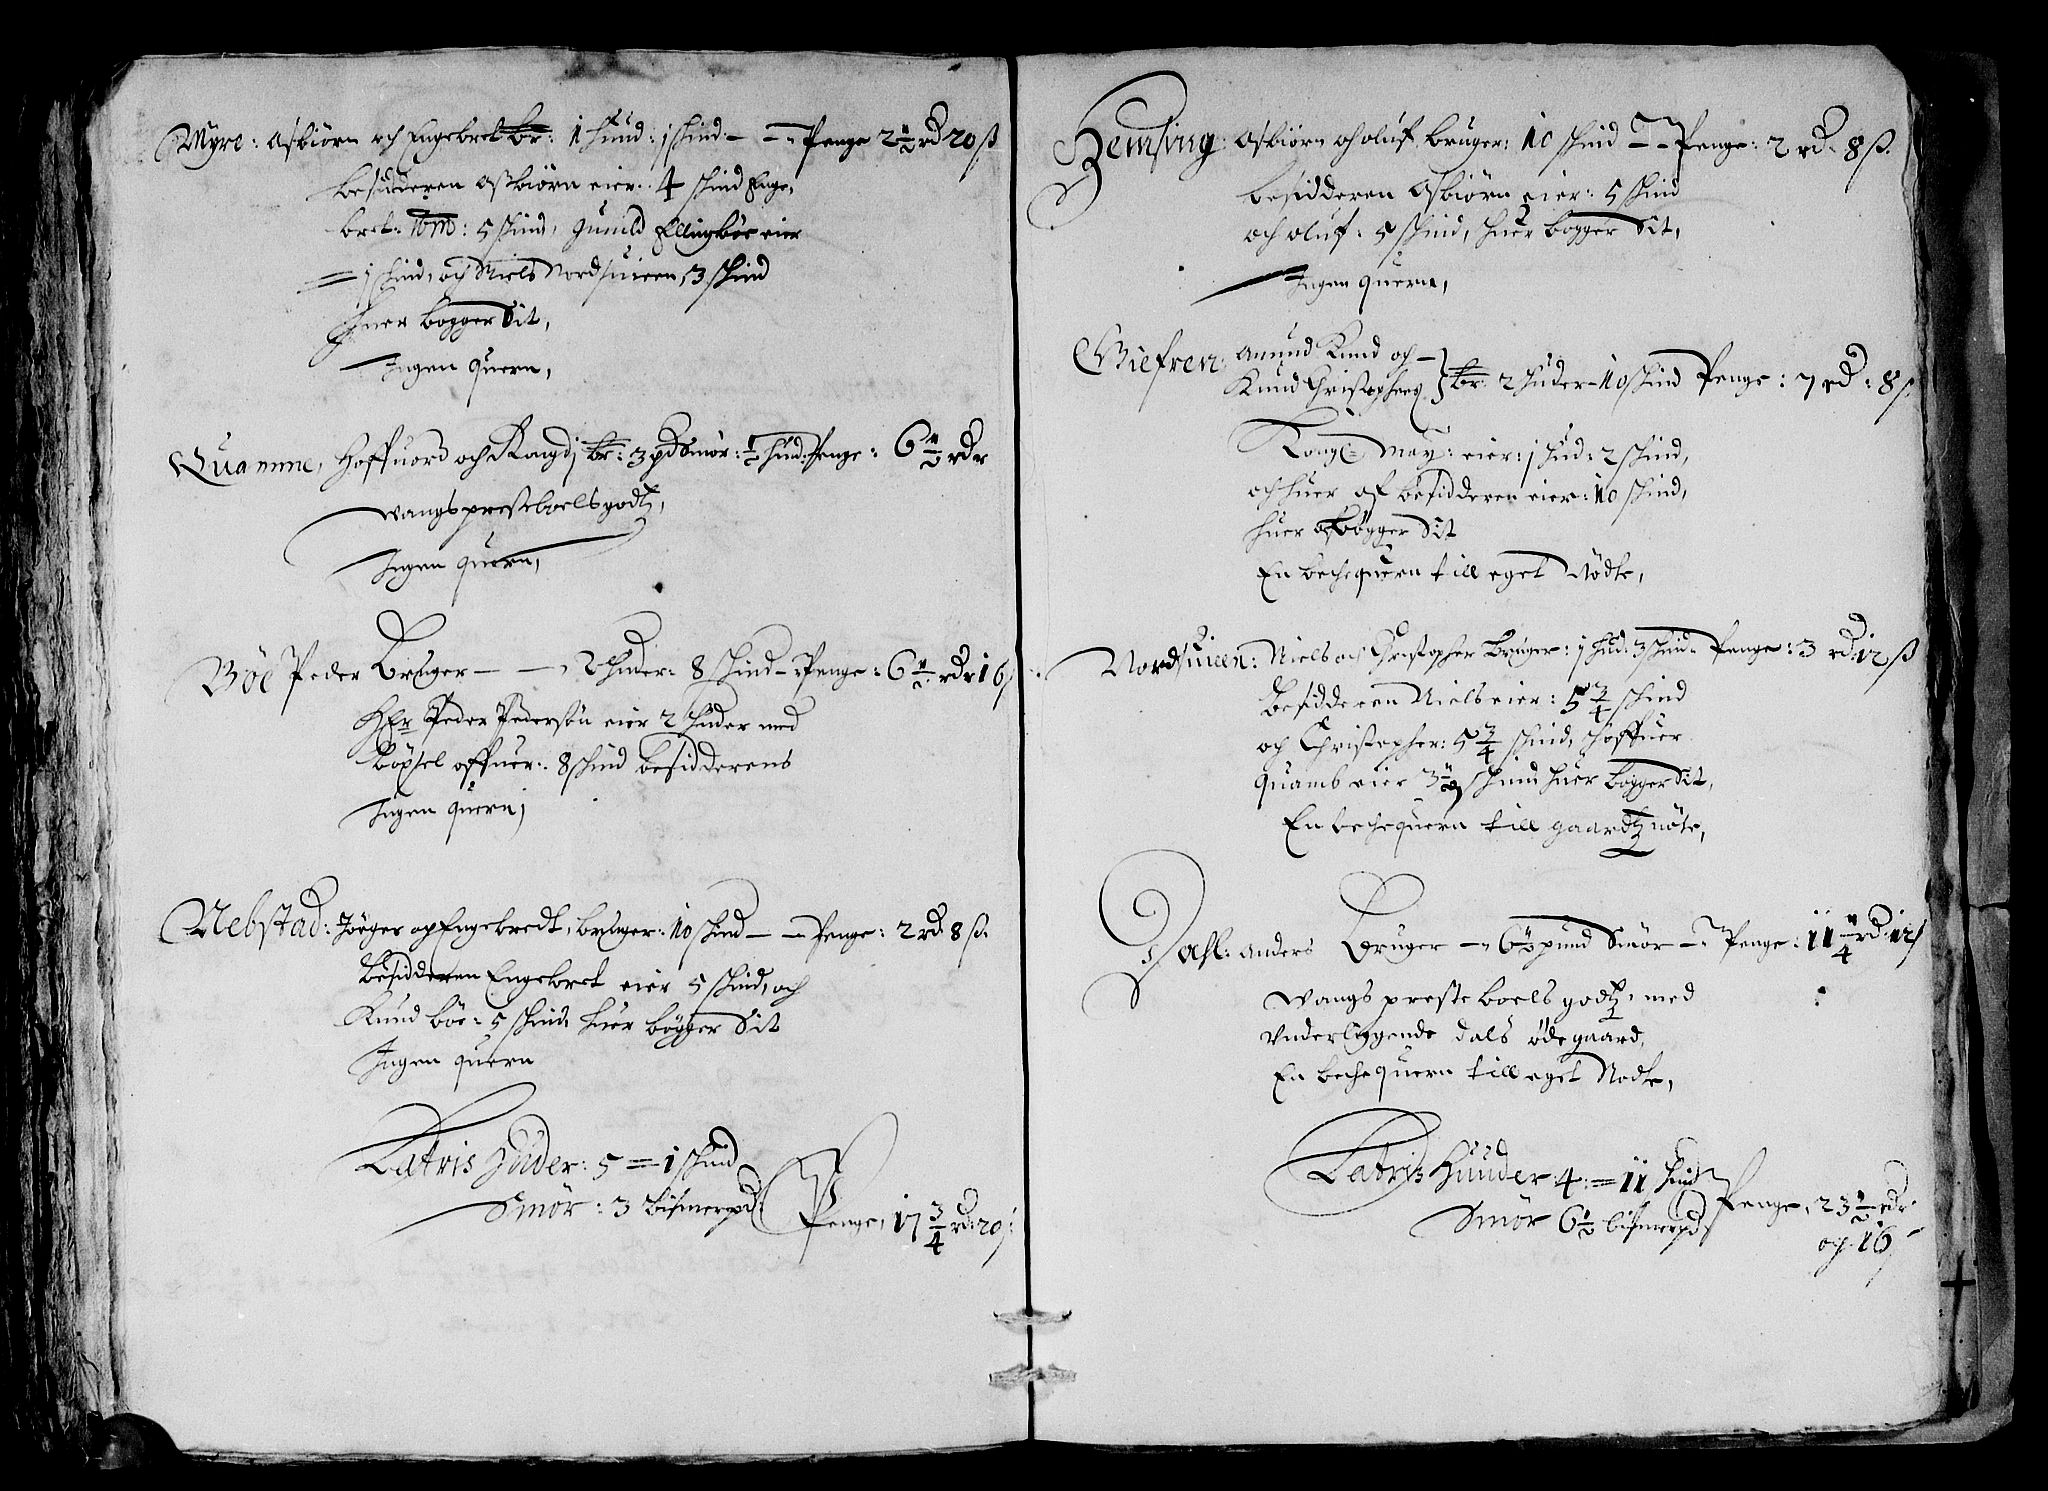 Myre: Asbiørn och Engebret br: 1 hund: 1 skind — Penge 2½ rd 20 ß
besidderen Asbiørn eier: 4 skind Enge,
bret: 5 skind, Gunild Ellingbøe eier
= 1 skind, och Niels Nordsuieen, 3 skind
huer bøgger Sit,
Ingen quern,
Quamme, Hoffuord och Ragdj br: 3 pd Smør: ½ hud: Penge: 6½ rdr
Wangs presteboels godtz,
Ingen quern,
Böe Peder Bruger — 2 huder: 8 skind — Penge: 6½ rdr 16
Her Peder Pedersøn eier 2 huder med
böxsel offuer: 8 skind besidderens
Ingen quern,
Nebstad: Jörger og Engebredt, bruger: 10 skind — Penge: 2 rd: 8 ß.
besidderen Engebret eier 5 skind, och
Knud böe: 5 skind huer bögger Sit
Ingen quern
Latris Huder: 5 = 1 skind
Smör: 3 bismerpd:
Penge, 17¾ rd: 20
Hemsing: Asbiørn och oluf bruger: 10 skind — Penge: 2 rd: 8 ß.
besidderen Asbiörn eier: 5 skind
och oluf: 5 skind, huer bøgger Sit,
Ingen quern,
Giefren: Amund Knud och
Knud Christophers } br: 2 huder — 10 skind Penge: 7 rd: 8 ß
Kongl: May: eier: 1 hud: 2 skind,
och huer af besidderen eier: 10 skind,
huer bögger Sit
En bechequern till eget Nödt,
Nordsuieen: Niels och Christopher bruger: 1 hud: 3 skind: Penge: 3 rd: 12 ß
besidderen Niels eier: 5¾ skind
och Christopher: 5¾ skind, Hoffuer
quamb eier 3½ skind huer bøgger Sit,
En bechequern till gaardtz nöte,
Dahl: Anders Bruger — 6½ pund Smör — Penge: 11¼ rd: 12
Wangs presteboels godtz, med
Vnderliggende dals ödegaard,
En bechequern till eget Nodt,
Latris Huuder: 4: = 11 skind
Smör 6½ bismerpd
Penge, 23½ rdr
og 16